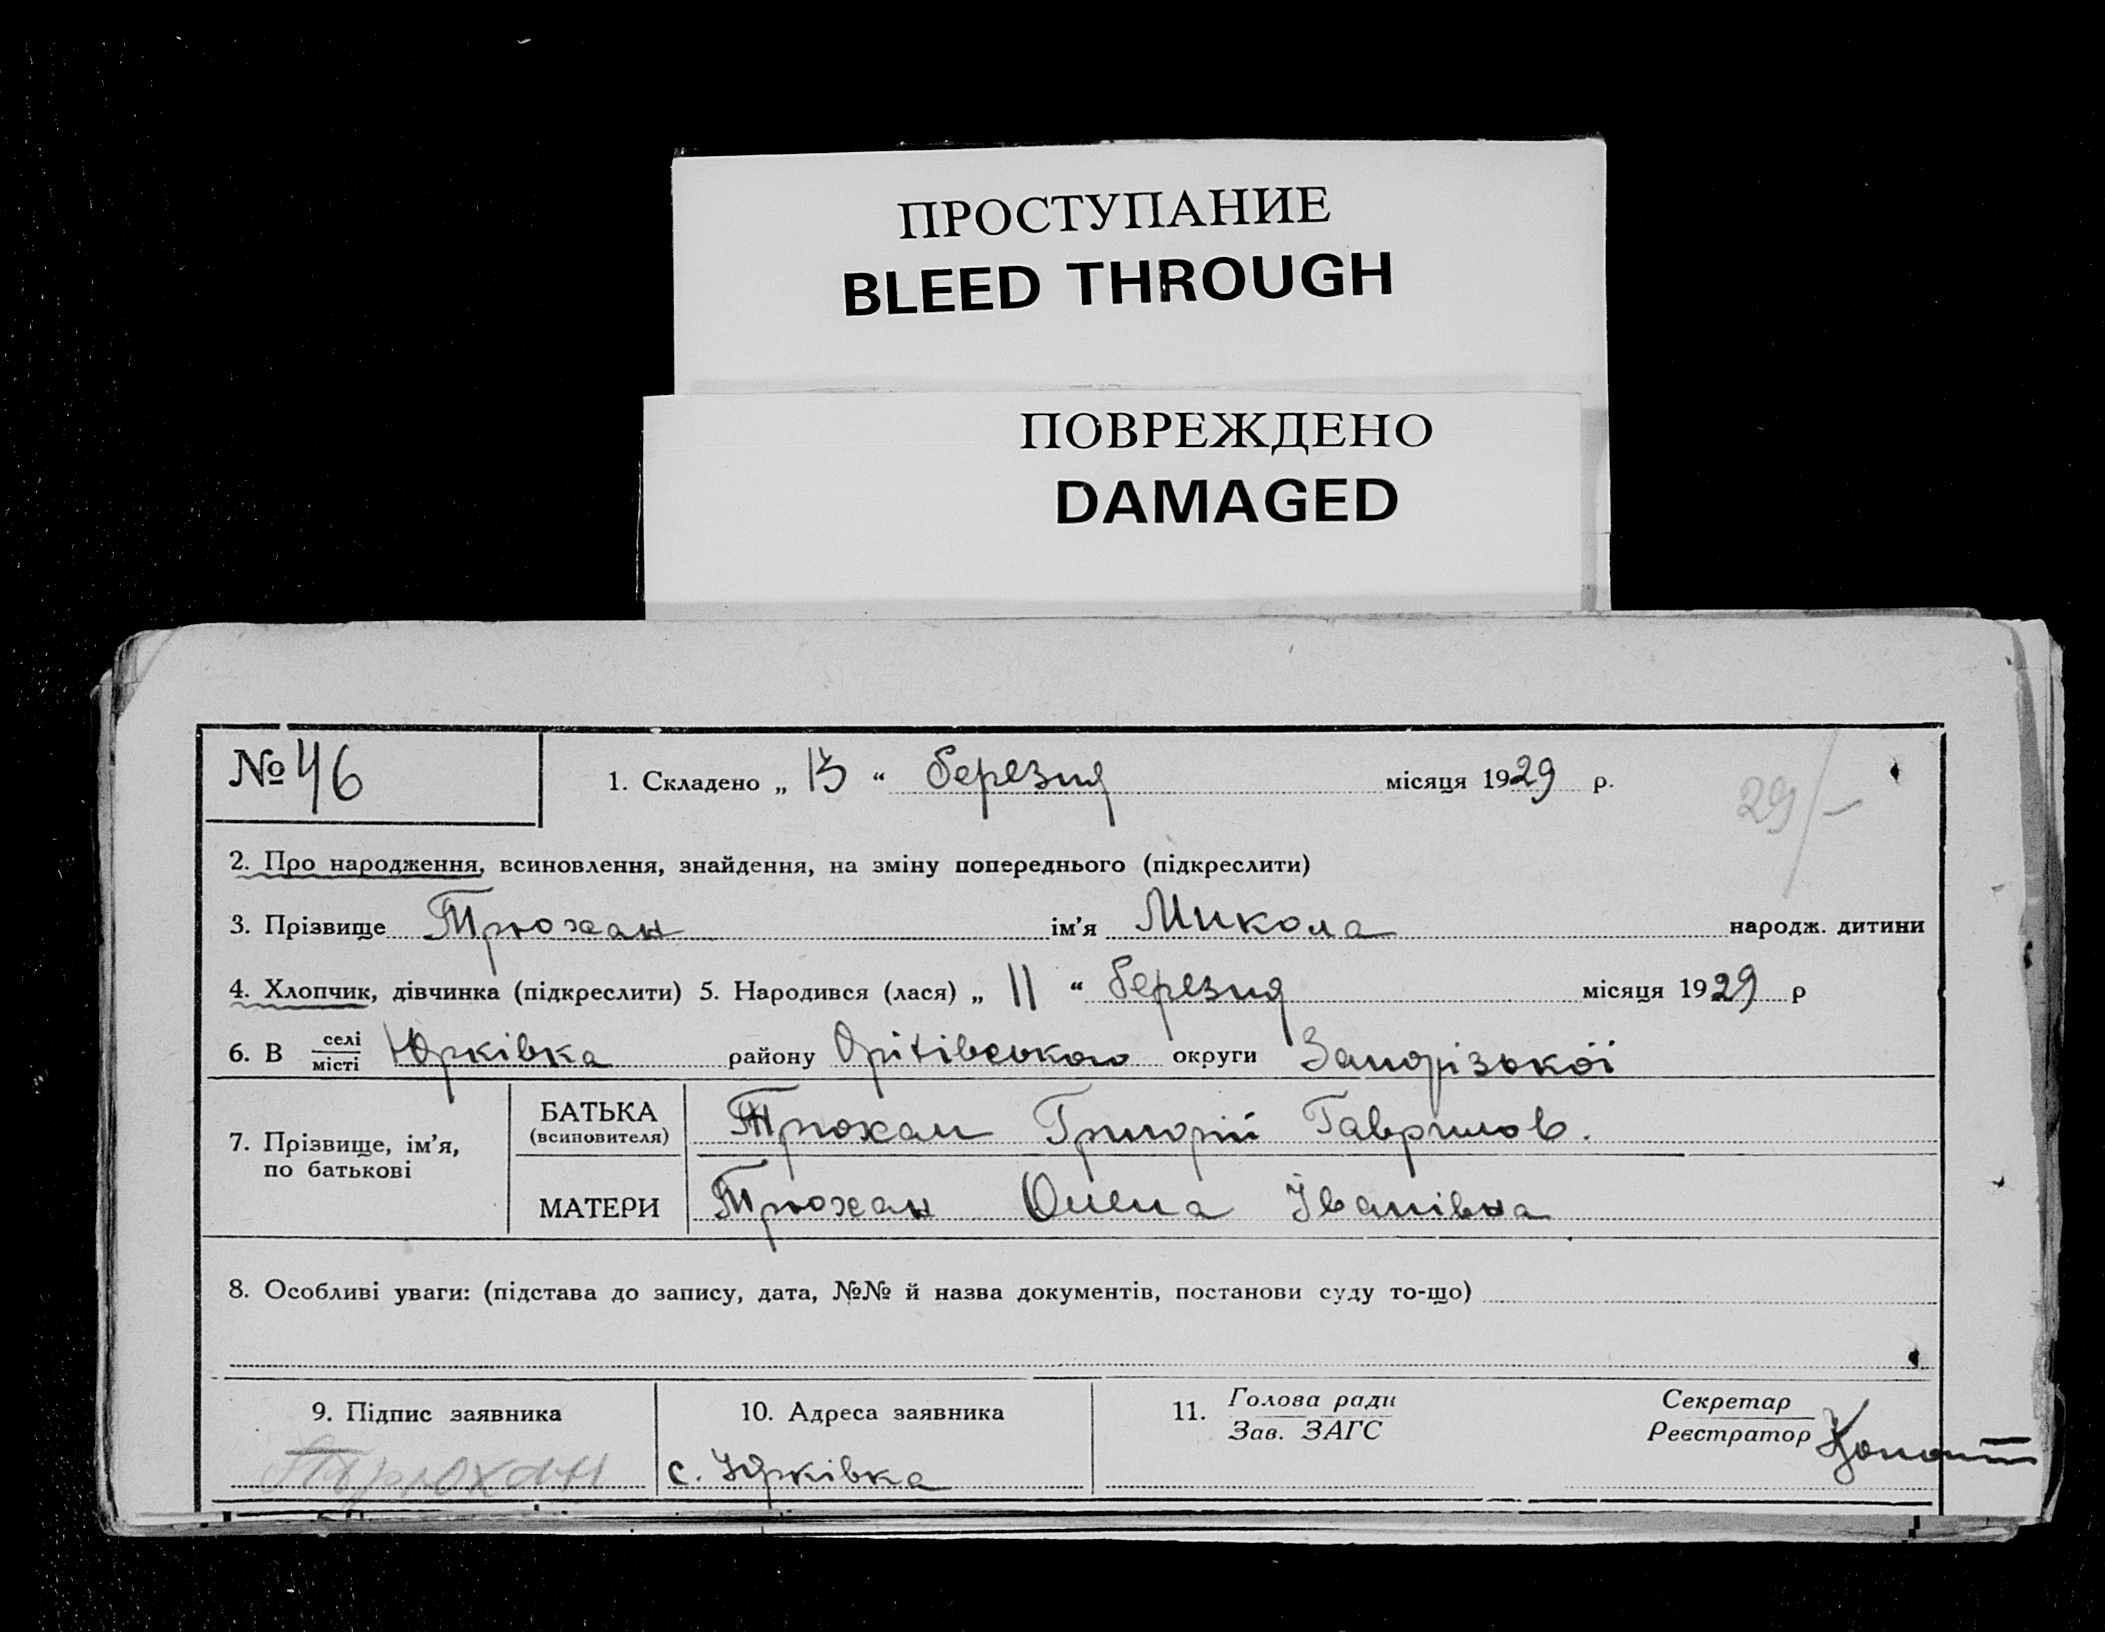 ПРОСТУПАНИЕ
BLEED THROUGH
ПОВРЕЖДЕНО
DAMAGED
№ 46 1. Складено „ 13 “ березня місяця 1929 р.
29/-
2. Про народження, всиновлення, знайдення, на зміну попереднього (підкреслити)
3. Прізвище Трюхан ім’я Микола народж. дитини
4. Хлопчик, дівчинка (підкреслити) 5. Народився (лася) „ 11 “ березня місяця 1929 р
6. В селі місті Юрківка району Оріхівського округи Запорізької
7. Прізвище, ім’я, по батькові
БАТЬКА (всиновителя) Трюхан Григорій Гаврилов.
МАТЕРИ Трюхан Олена Іванівна
8. Особливі уваги: (підстава до запису, дата, №№ й назва документів, постанови суду то-що)
9. Підпис заявника
Трюхан
10. Адреса заявника
с. Юрківка
11. Голова ради
Зав. ЗАГС
Секретар
Реєстратор